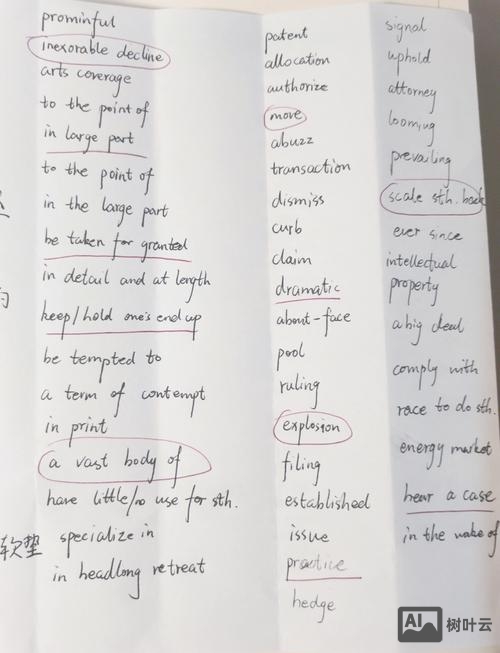 prominful
inexorable decline
arts coverage
to the point of
in large part
to the point of
in the large part
be taken for granted
in detail and at length
keep/hold one's end up
be tempted to
a term of contempt
in print
a vast body of
have little/no use for sth.
软垫 specialize in
in headlong retreat
patent
allocation
authorize
move
abuzz
transaction
dismiss
curb
claim
dramatic
about-face
pool
ruling
explosion
filing
established
issue
practice
hedge
signal
uphold
attorney
looming
prevailing
scale sth. back
ever since
intellectual
property
a big deal
comply with
race to do sth.
energy market
hear a case
in the wake of
AI 树叶云